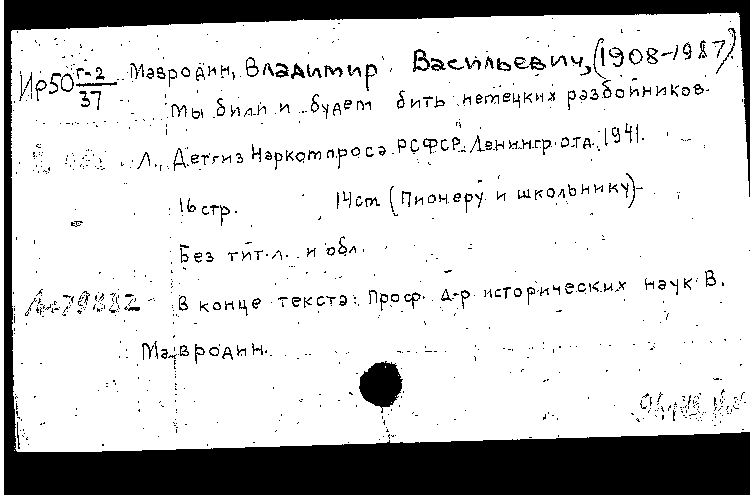 Ир50 г-2/37 Мавродин, Владимир Васильевич, (1908-1987).
Мы били и будем бить немецких разбойников.
Л., Детгиз Наркомпроса РСФСР. Ленингр. отд. 1941.
16 стр. 14 см (Пионеру и школьнику)
Без тит. л. и обл.
В конце текста: Проф. д-р исторических наук В.
Мавродин.